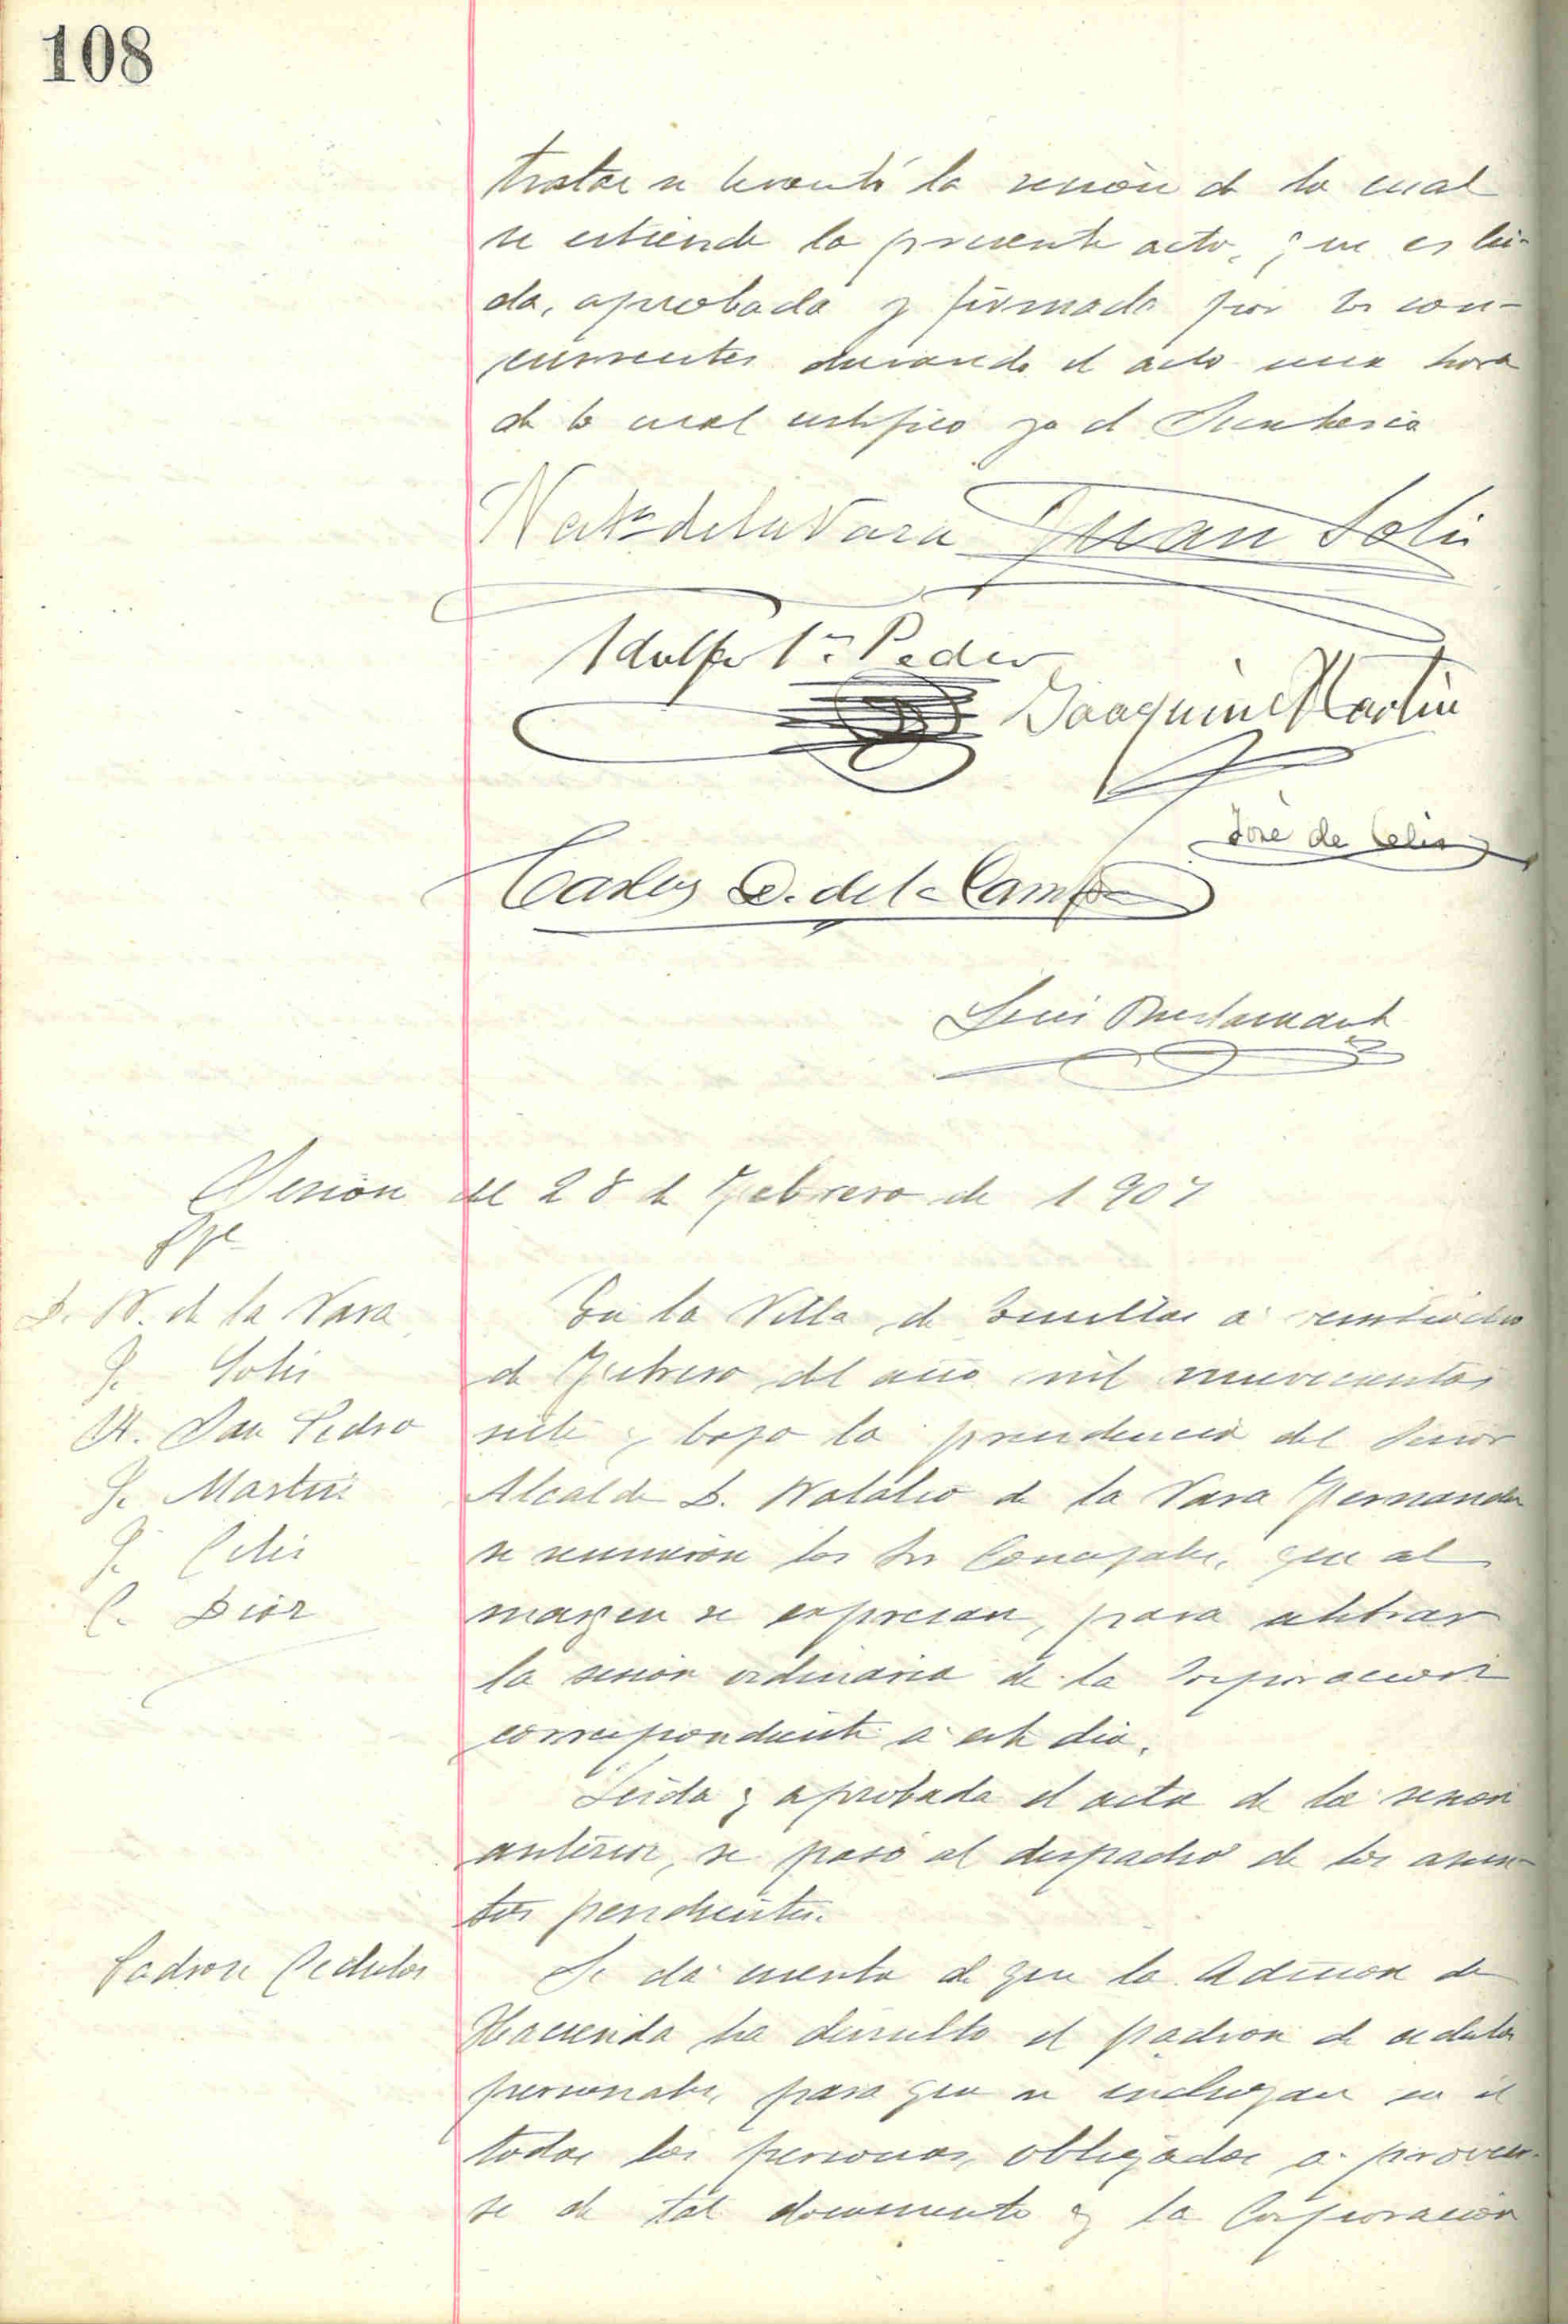 108
tratar se levantó la sesión de la cual
se extiende la presente acta, que es lei-
da, aprobada y firmada por los con-
currentes durando el acto una hora
de lo cual certifico yo el Secretario
Nat.º de la Vara Juan Solis
Adolfo Sn Pedro
Joaquin Martin
José de Celis
Carlos D. del Campo
Luis Bustamante
Sesión del 28 de Febrero de 1907
Pte
D. N. de la Vara
J. Solis
A. San Pedro
J. Martin
J. Celis
C. Diez
En la Villa de Comillas a veintiocho
de Febrero del año mil novecientos
siete y bajo la presidencia del Señor
Alcalde D. Natalio de la Vara Fernandez
se reunieron los Srs Concejales, que al
margen se expresan, para celebrar
la sesión ordinaria de la Corporacion
correspondiente a este dia.
Leida y aprobada el acta de la sesion
anterior, se pasó al despacho de los asun-
tos pendientes.
Padron Cedulas
Se da cuenta de que la Admon de
Hacienda ha devuelto el padron de cedulas
personales, para que se incluyan en el
todas las personas, obligadas a proveer-
se de tal documento y la Corporación